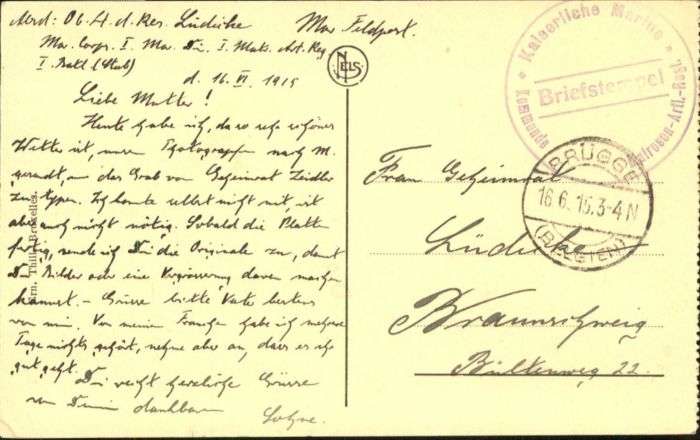 Abs: Ob. A. d. Res. Lüdicke Mar. Feldpost.
Mar. Corps. I. Mar. Div. I. Matr. Art. Reg
I. Batl (Stab)
d. 16. VI. 1915
Liebe Mutter!
Heute habe ich, da so sehr schönes
Wetter ist, unsern Photographen nach M.
gesandt, um das Grab von Geheimrat Zeidler
zu typen. Ich konnte selbst nicht mit, ist
aber auch nicht nötig. Sobald die Platten
fertig, sende ich Dir die Originale zu, damit
Du Bilder oder eine Vergrösserung davon machen
kannst. – Grüsse bitte Vater bestens
von mir. Von meiner Frau habe ich mehrere
Tage nichts gehört, nehme aber an, dass es ihr
gut geht.
Dir recht herzliche Grüsse
von Deinem dankbaren
Sohne.
NELS
Ern. Thill, Bruxelles.
Kaiserliche Marine
Briefstempel
Kommando Matrosen-Artl.-Regt.
BRÜGGE
16.6.15.3-4N
(BELGIEN)
Frau Geheimrat
Lüdicke
Braunschweig
Bültenweg 22.